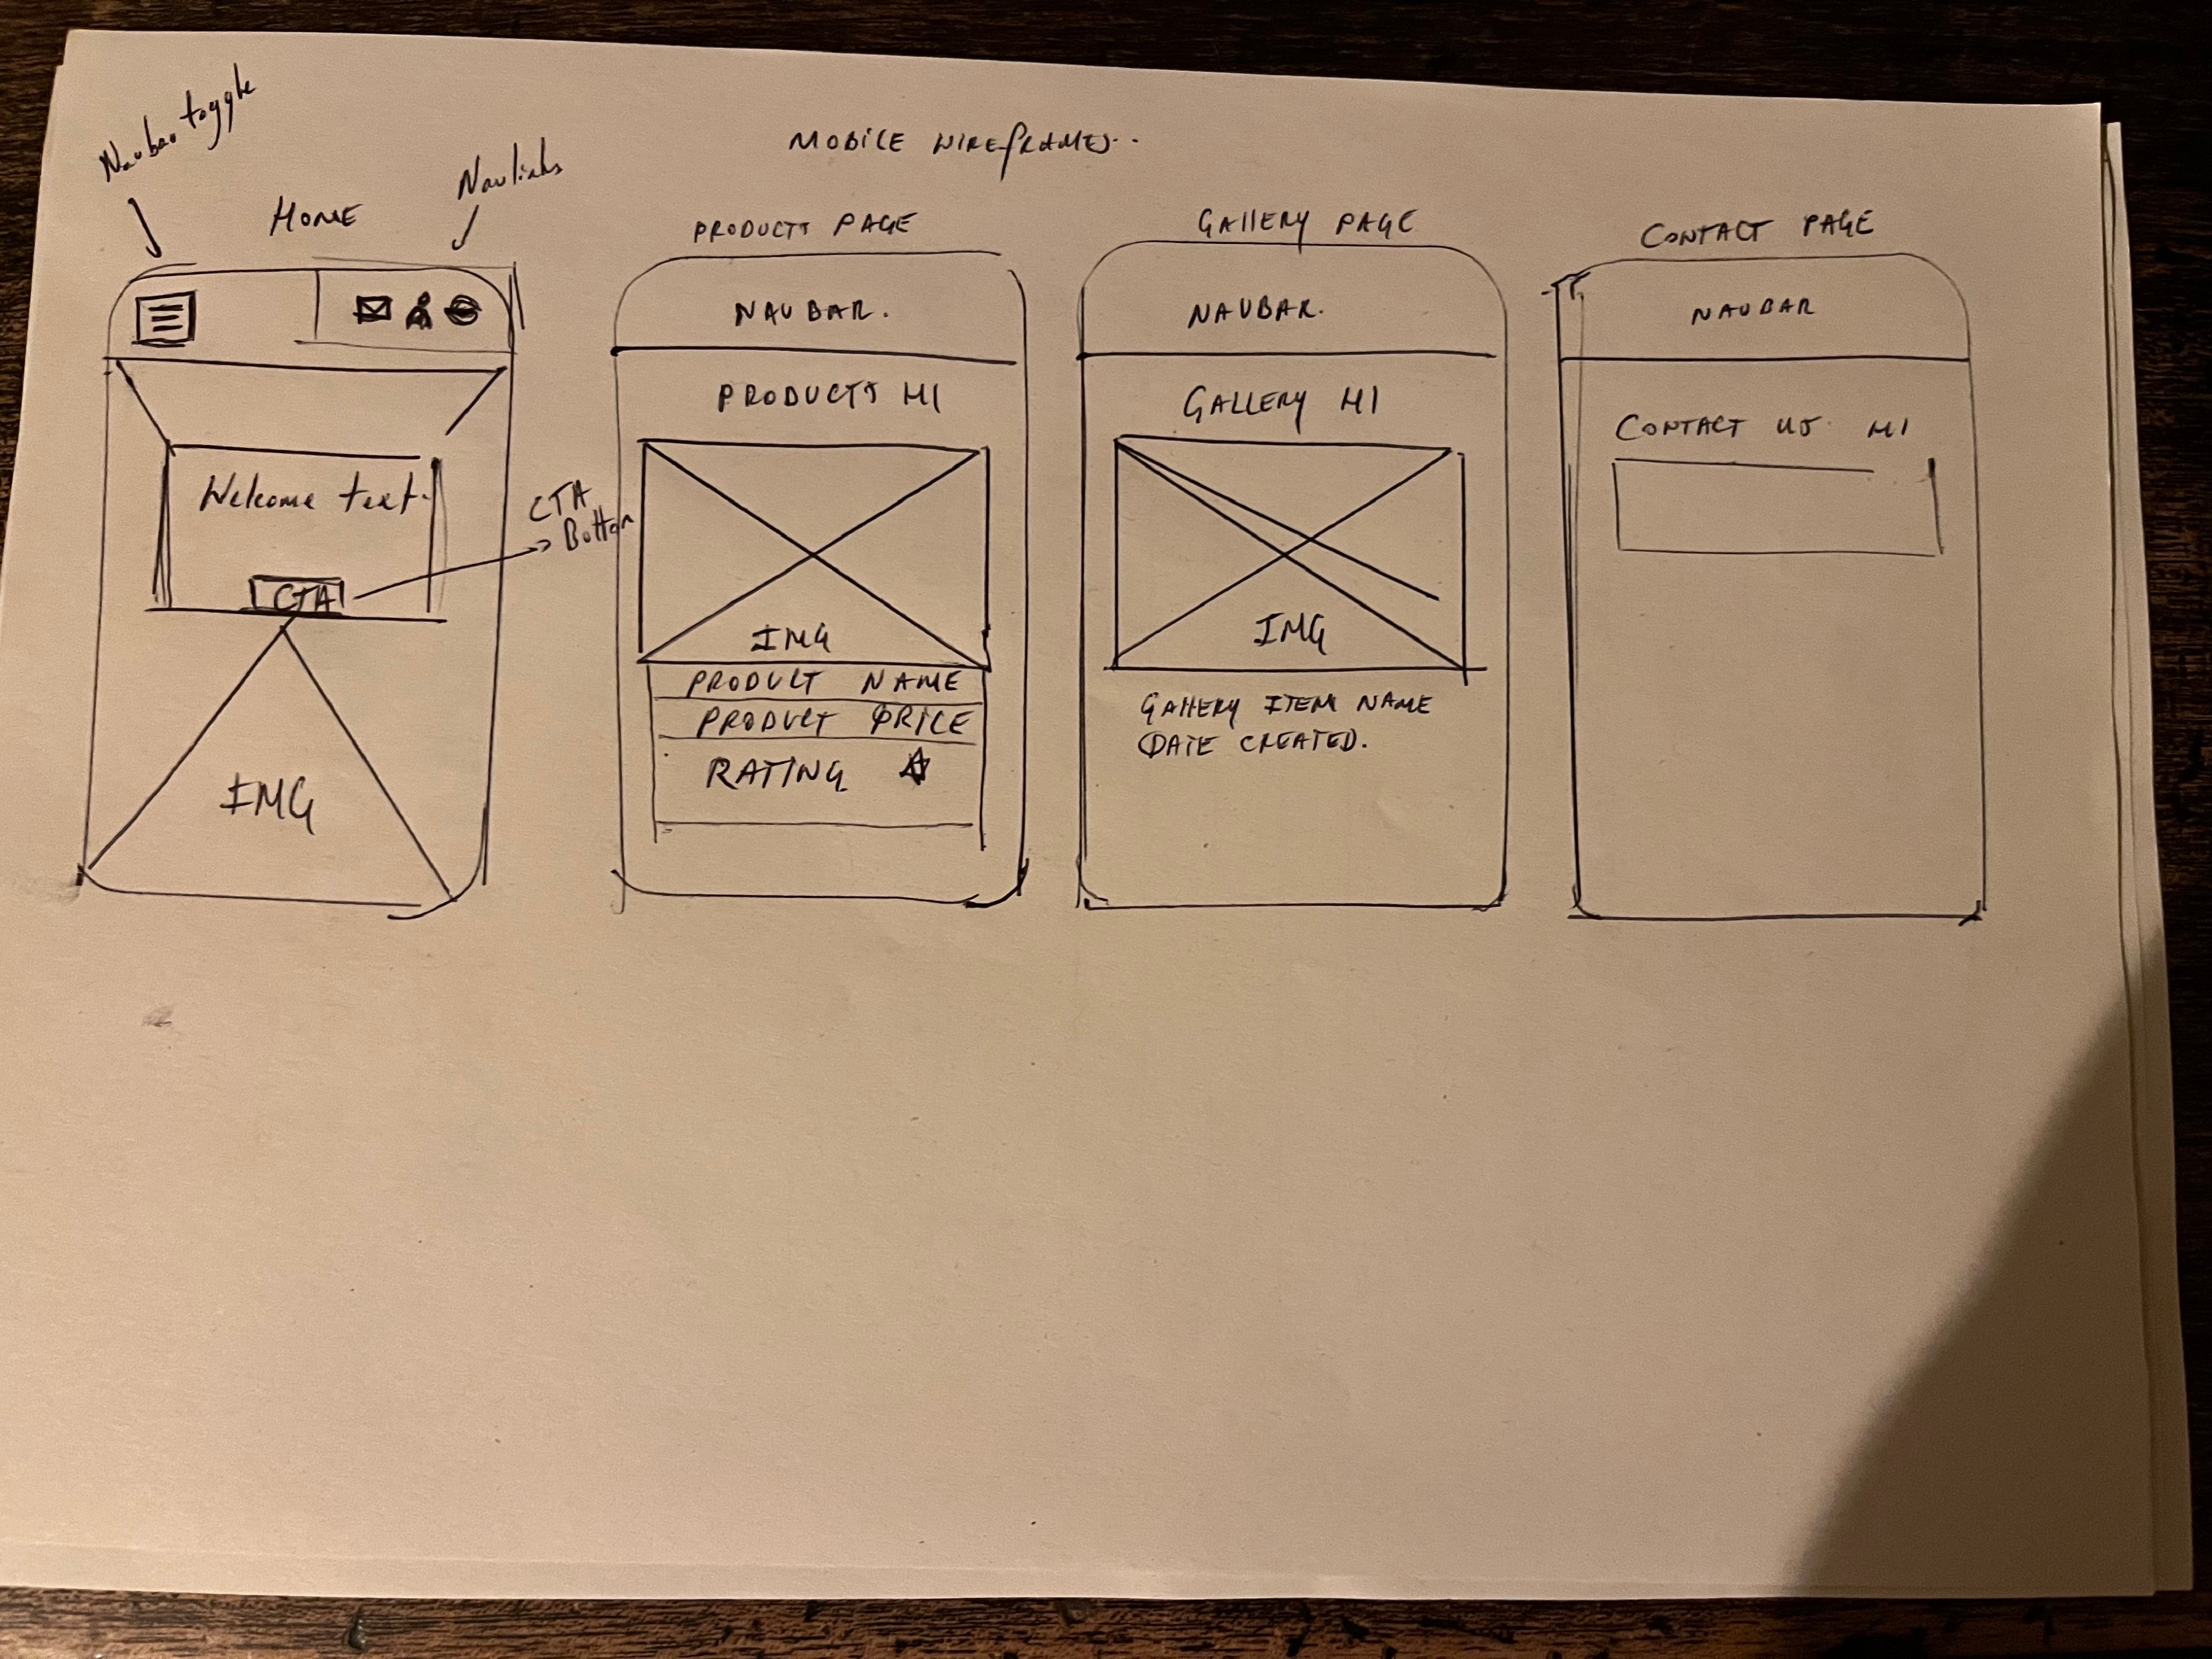 MOBILE WIREFRAMES..
Navbar toggle
Navlinks
HOME
Welcome text.
CTA
CTA
Button
IMG
PRODUCTS PAGE
NAVBAR.
PRODUCTS H1
IMG
PRODUCT NAME
PRODUCT PRICE
RATING
GALLERY PAGE
NAVBAR.
GALLERY H1
IMG
GALLERY ITEM NAME
DATE CREATED.
CONTACT PAGE
NAVBAR
CONTACT US H1